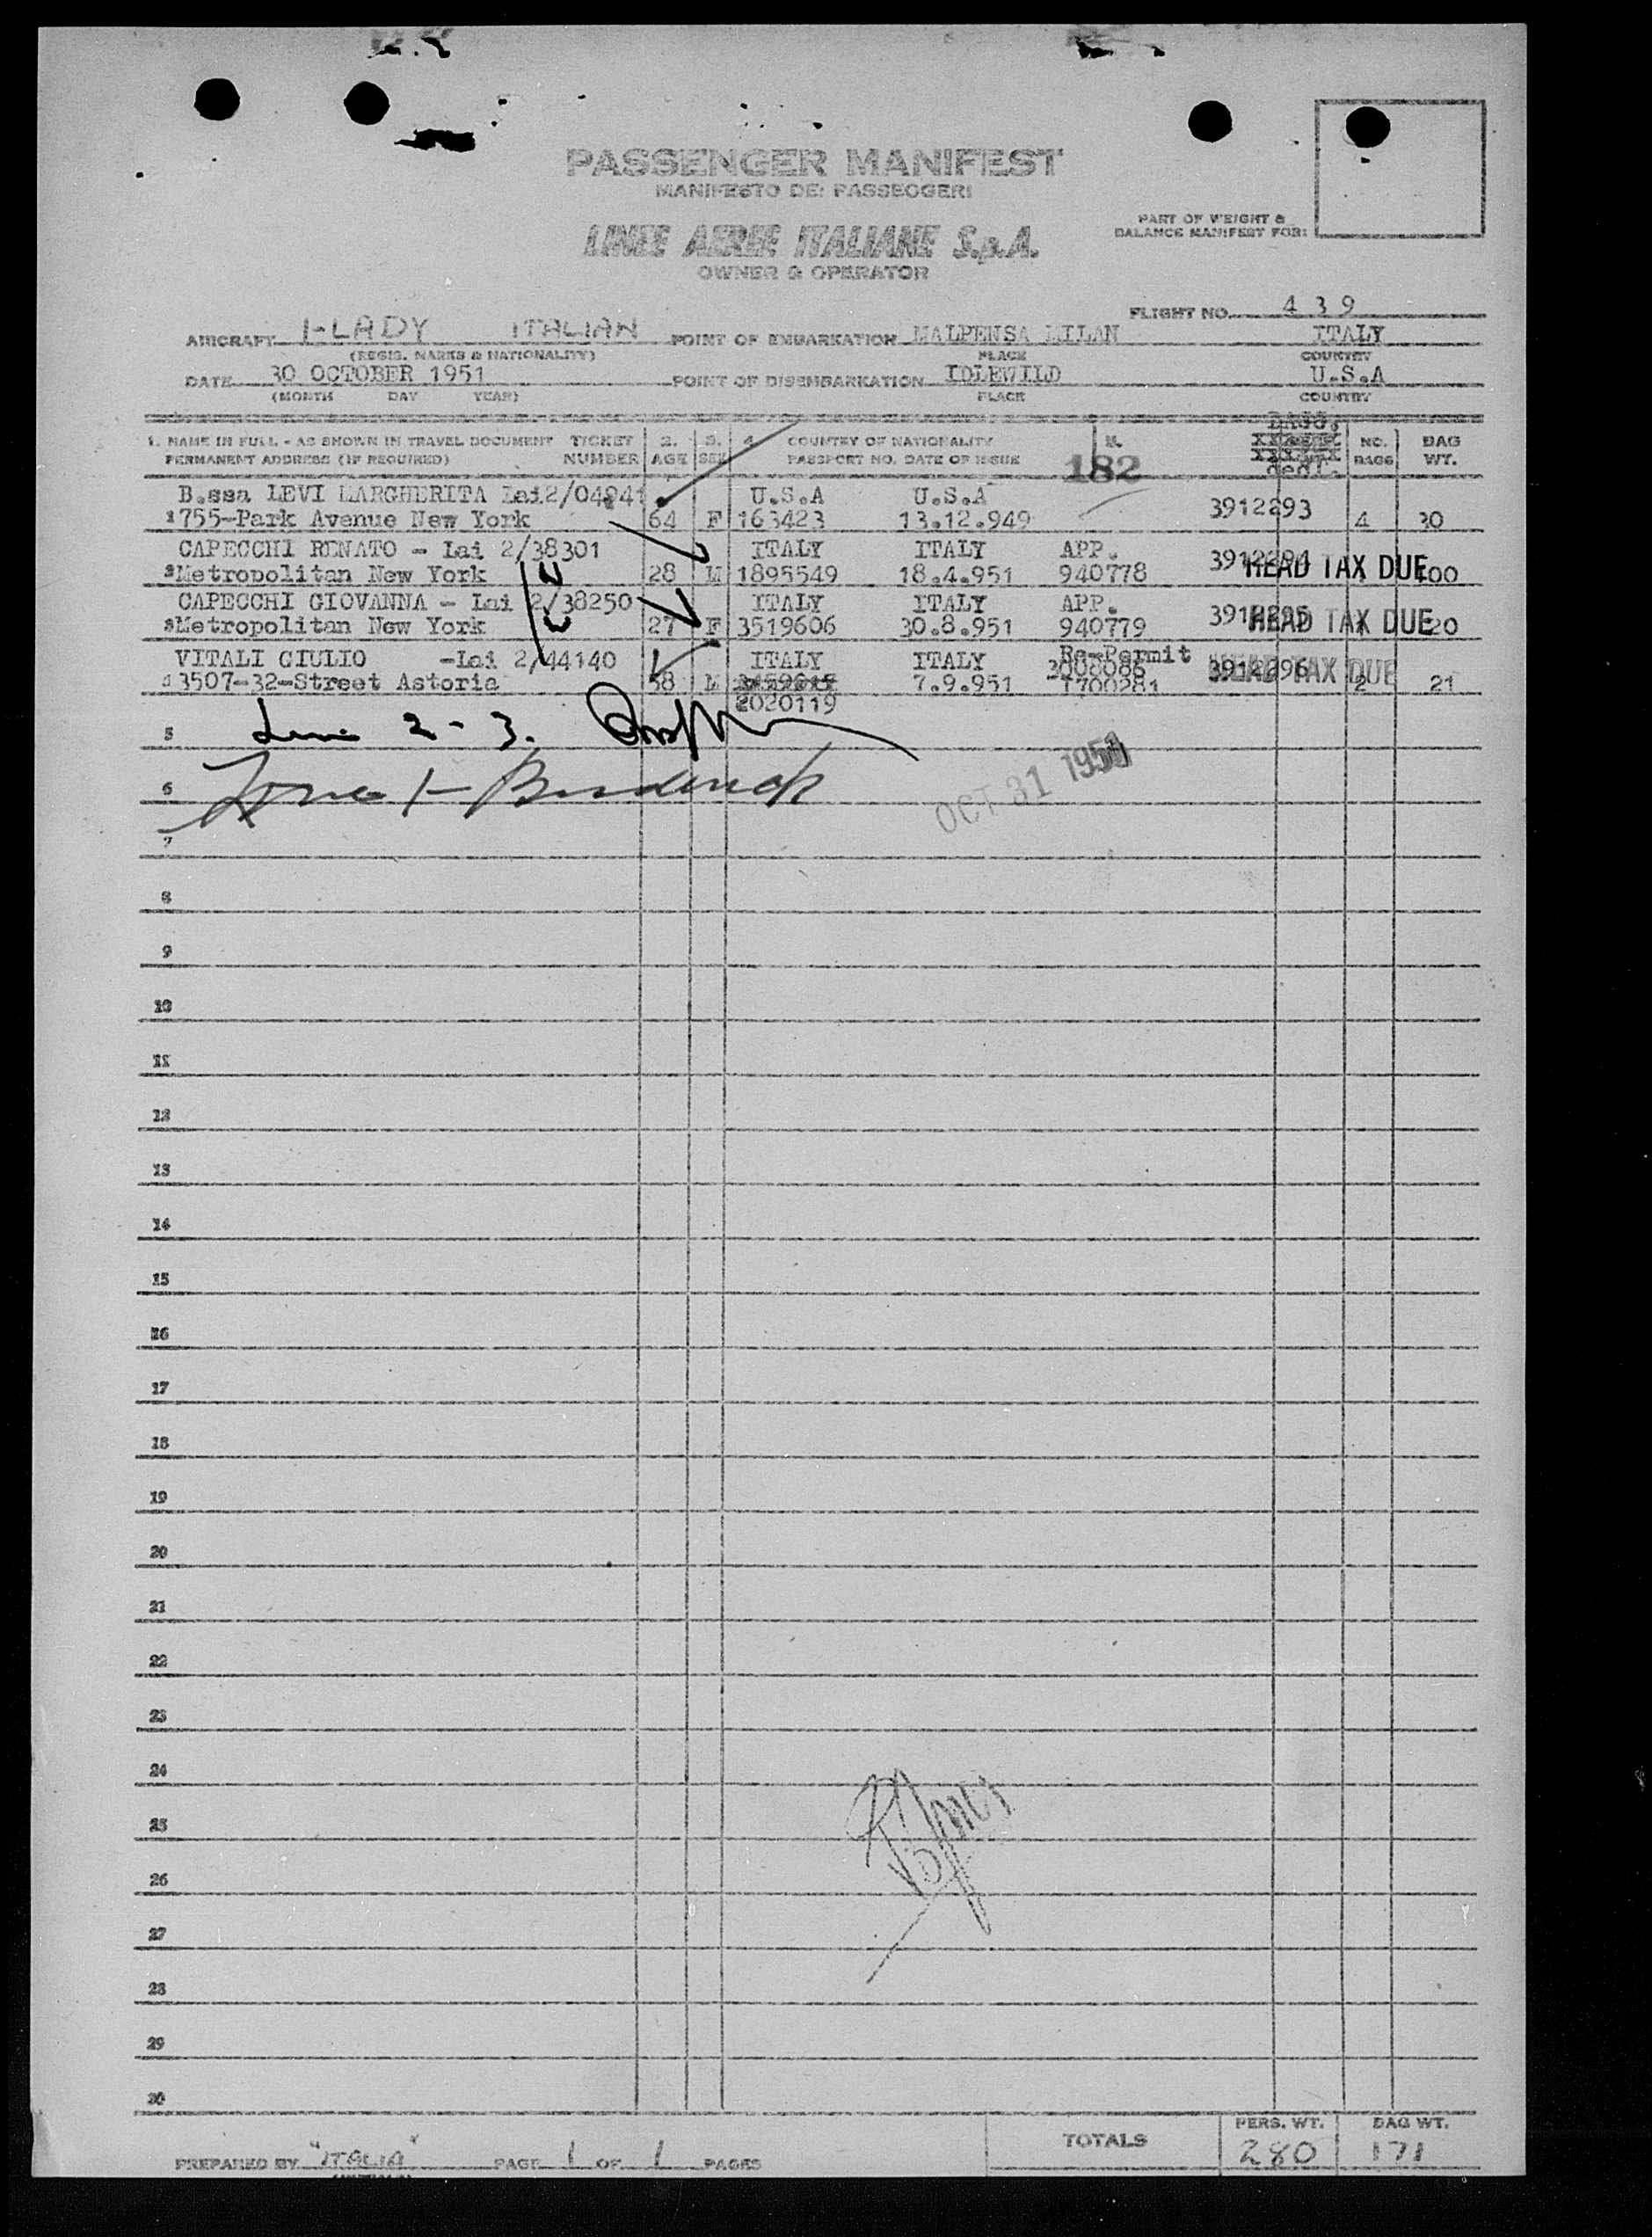 PASSENGER MANIFEST
MANIFESTO DEI PASSEGGERI
LINEE AEREE ITALIANE S.p.A.
OWNER & OPERATOR
PART OF WEIGHT &
BALANCE MANIFEST FOR:
FLIGHT NO. 439
AIRCRAFT I-LADY ITALIAN POINT OF EMBARKATION MALPENSA MILAN ITALY
(REGIS. MARKS & NATIONALITY) PLACE COUNTRY
DATE 30 OCTOBER 1951 POINT OF DISEMBARKATION IDLEWILD U.S.A
(MONTH DAY YEAR) PLACE COUNTRY
1. NAME IN FULL - AS SHOWN IN TRAVEL DOCUMENT TICKET 2. 3. 4. COUNTRY OF NATIONALITY NO. BAG
PERMANENT ADDRESS (IF REQUIRED) NUMBER AGE SEX PASSPORT NO. DATE OF ISSUE 182 BAGS WT.
B.ssa LEVI MARGHERITA Lai2/04941 U.S.A U.S.A
1 755-Park Avenue New York 64 F 163423 13.12.949 3912293 4 30
CAPECCHI RENATO - Lai 2/38301 ITALY ITALY APP.
2 Metropolitan New York 28 M 1895549 18.4.951 940778 3912294 HEAD TAX DUE 100
CAPECCHI GIOVANNA - Lai 2/38250 ITALY ITALY APP.
3 Metropolitan New York 27 F 3519606 30.8.951 940779 3912295 HEAD TAX DUE 20
VITALI GIULIO -Lai 2/44140 ITALY ITALY Re-Permit
4 3507-32-Street Astoria 58 M 7.9.951 1700281 3912296 HEAD TAX DUE 2 21
2020119
5 2-3.
6
OCT 31 1951
7
8
9
10
11
12
13
14
15
16
17
18
19
20
21
22
23
24
25
26
27
28
29
30
TOTALS PERS. WT. BAG WT.
280 171
PREPARED BY "ITALIA" PAGE 1 OF 1 PAGES
(INITIALS)